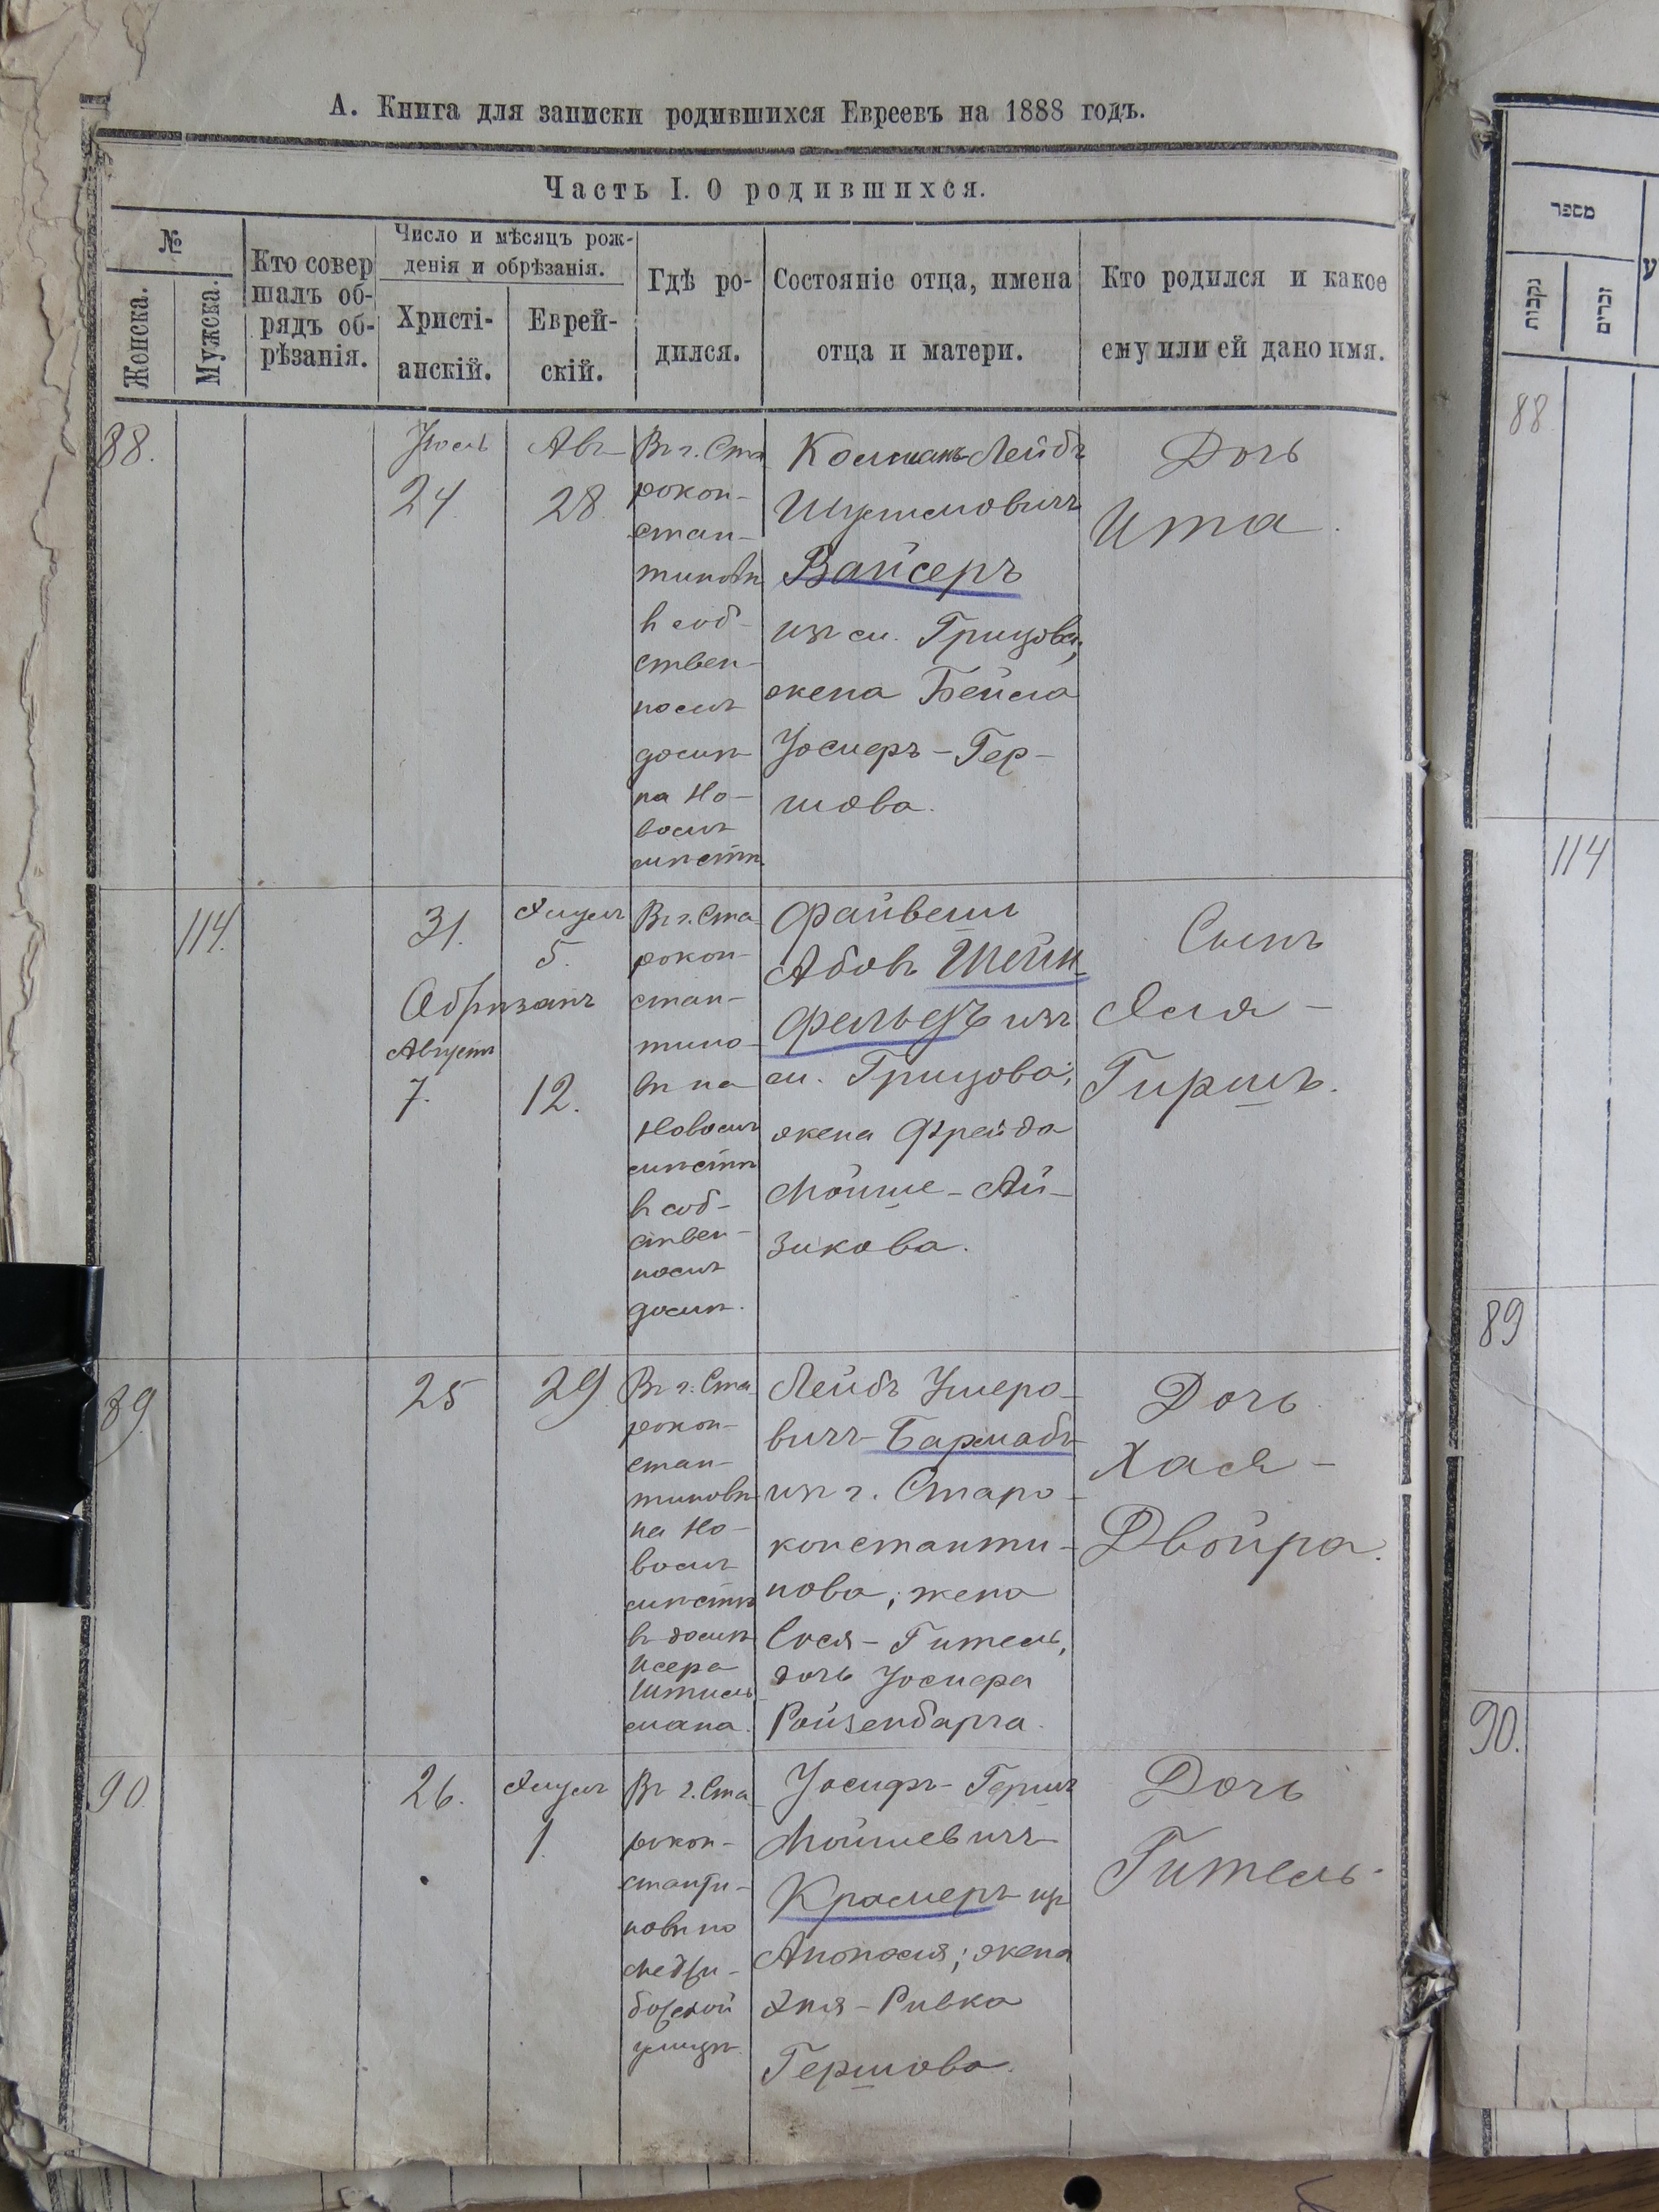 А. Книга для записки родившихся Евреевъ на 1888 годъ.
Часть I. О родившихся.
№
Женска.
Мужска.
Кто совер
шалъ об-
рядъ об-
рѣзанія.
Число и мѣсяцъ рож-
денія и обрѣзанія.
Христі-
анскій.
Еврей-
скій.
Гдѣ ро-
дился.
Состояніе отца, имена
отца и матери.
Кто родился и какое
ему или ей дано имя.
88.
Іюль
24
Авъ
28
Въ г. Ста
рокон-
стан-
тиновѣ
въ соб-
ствен-
номъ
домѣ
на Но-
вомъ
мѣстѣ
Кольманъ-Лейбъ
Шулимовичъ
Вайсеръ
изъ м. Грицова,
жена Бейла
Іосиеръ-Гер-
шова.
Дочь
Ита.
114.
31.
Обрѣзанъ
Августъ
7.
Элулъ
5.
12.
Въ г. Ста
рокон-
стан-
тино-
вѣ на
Новомъ
мѣстѣ
въ соб-
ствен-
номъ
домѣ.
Файвель
Абовъ Шейн-
фельдъ изъ
м. Грицова;
жена Фрейда
Мойше-Ай-
зикова.
Сынъ
Эля-
Гиршъ.
89
25
29.
Въ г. Ста
рокон-
стан-
тиновѣ
на Но-
вомъ
мѣстѣ
въ домѣ
Исера
Штиль
мана.
Лейбъ Умеро-
вичъ Бармабъ
изъ г. Старо-
константи-
нова; жена
Сося-Гитель,
дочь Іосиера
Ройзенбарга.
Дочь
Хася-
Двойра.
90.
26.
Элулъ
1.
Въ г. Ста
рокон-
станти-
новѣ по
Меджи-
божской
улицѣ.
Іосифъ-Гершъ
Мойшевичъ
Крамеръ изъ
Анополя; жена
Эня-Ривка
Гершова.
Дочь
Гитель.
מספר
נקבות
זכרים
88
114
89
90.